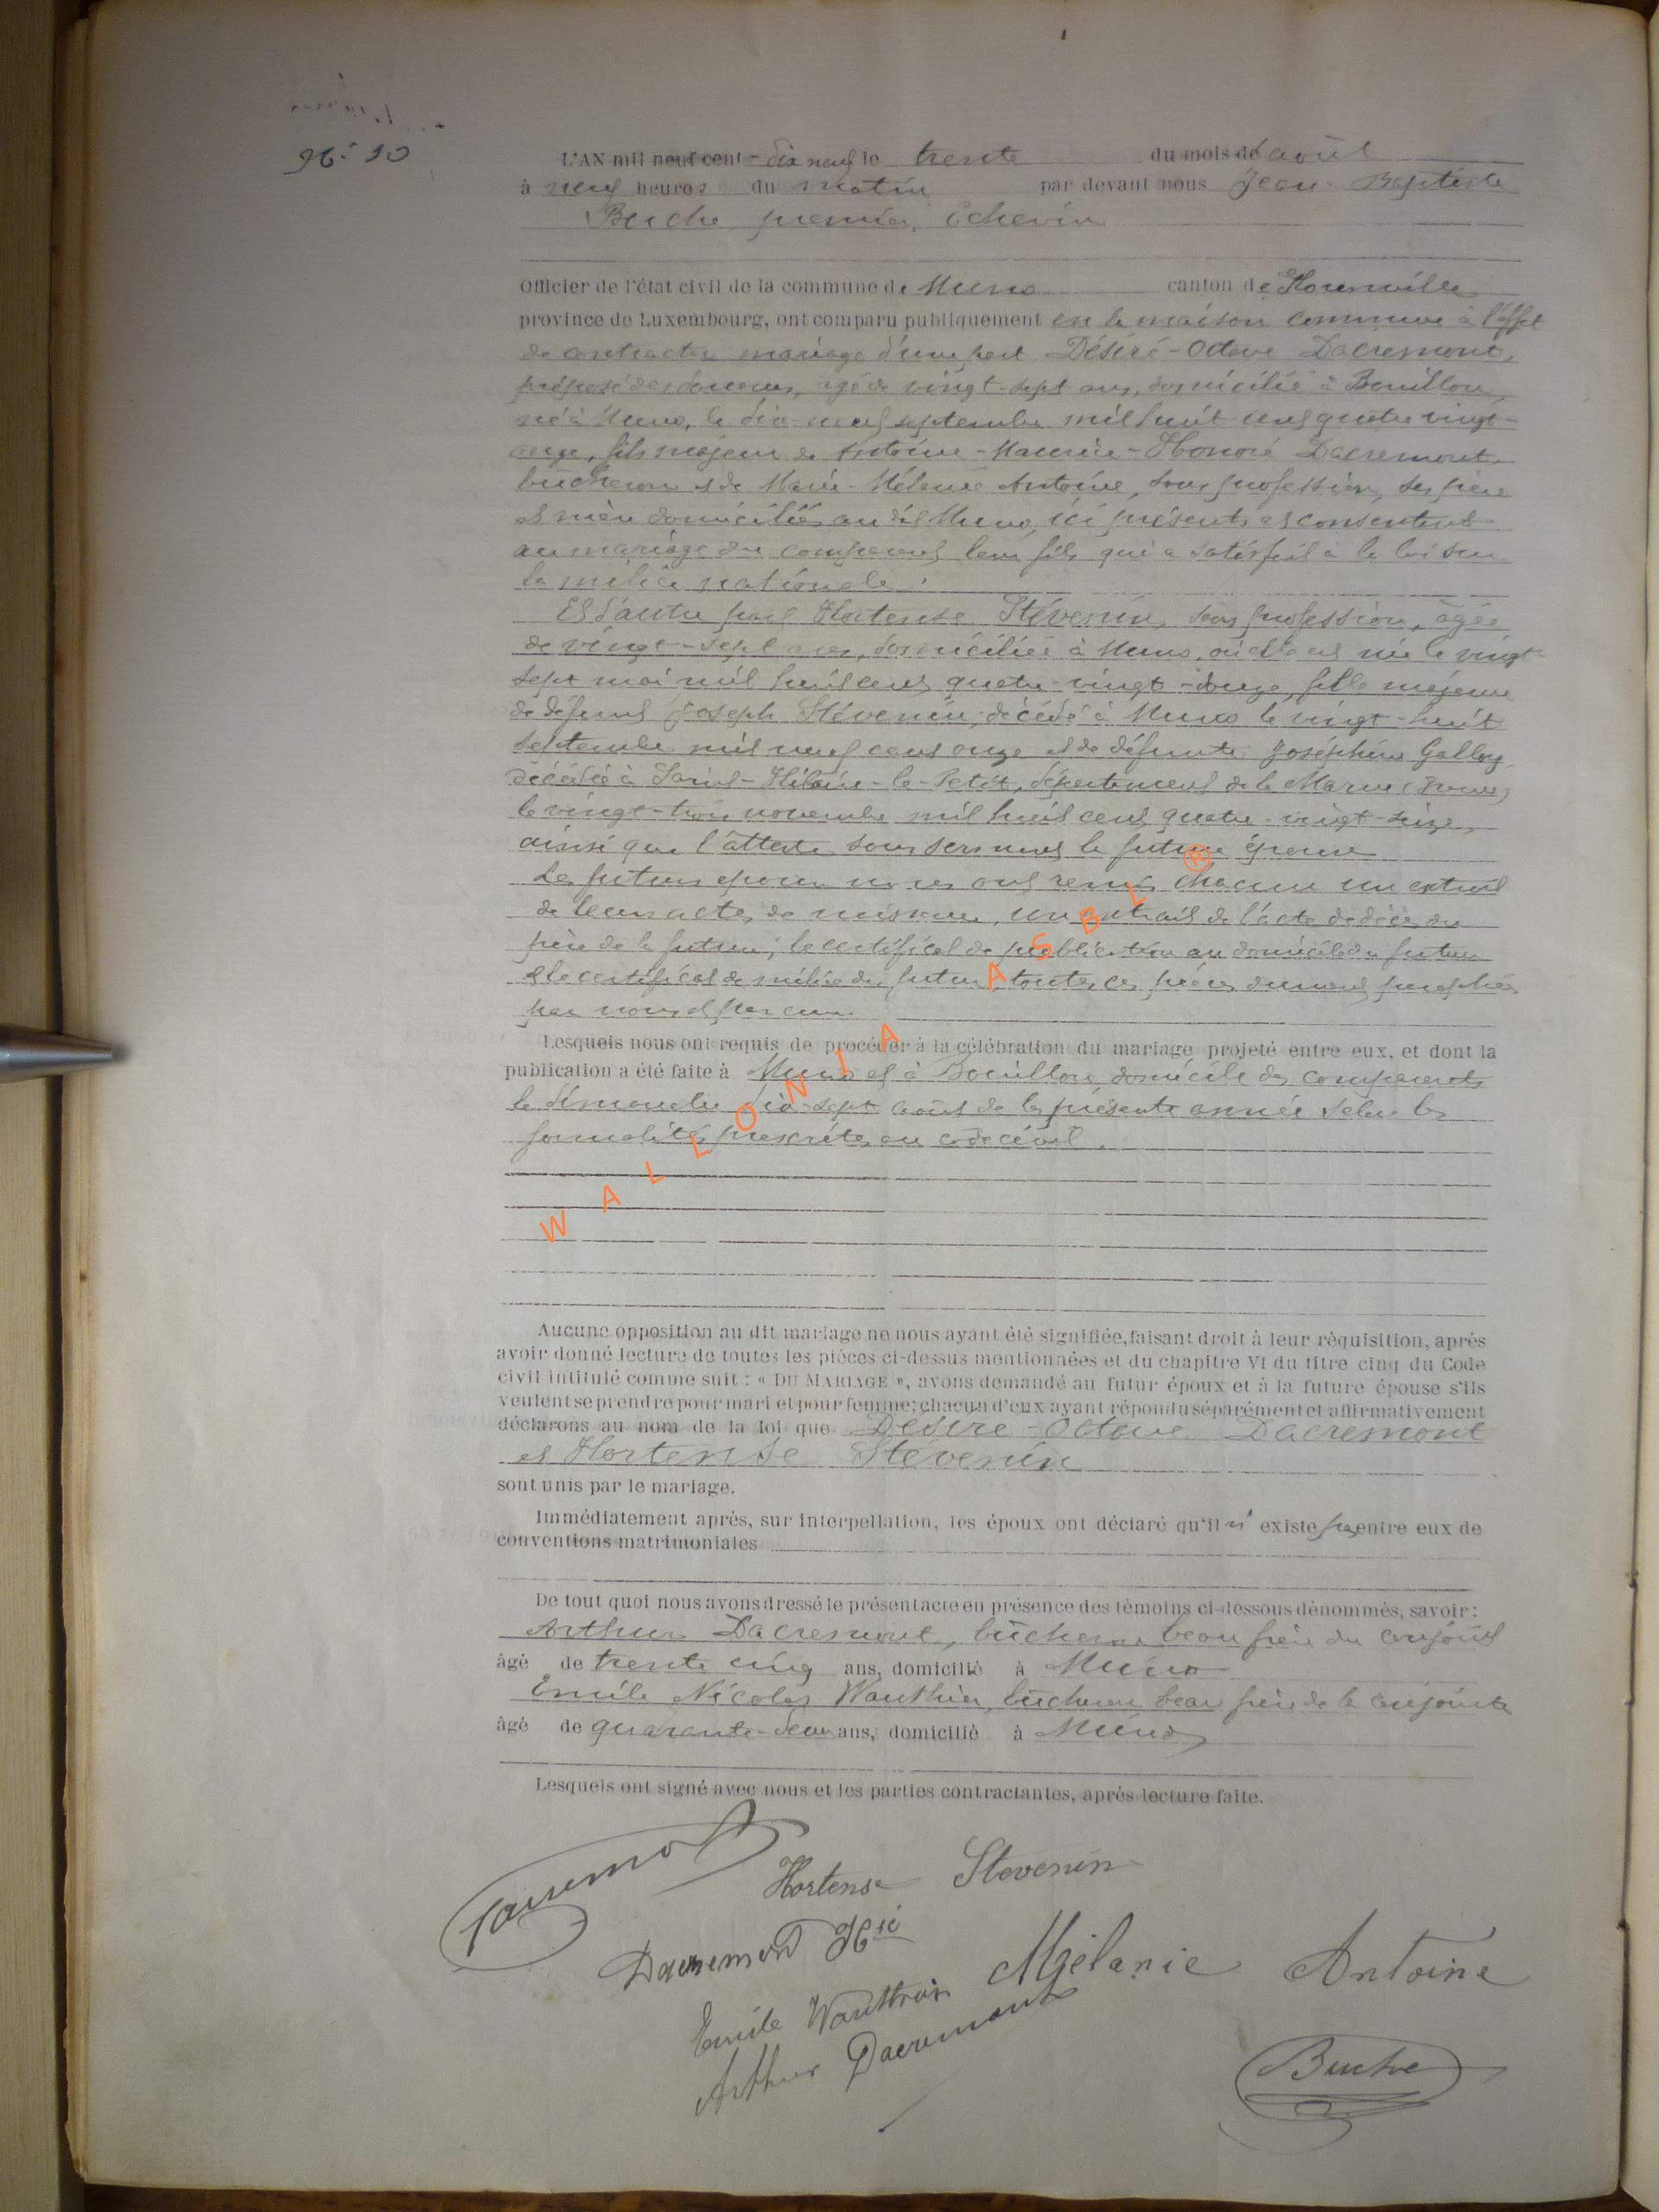 N° 10
L'AN mil neuf cent - dix neuf le trente du mois de août
à neuf heures du matin par devant nous Jean-Baptiste
Buche premier Echevin
Officier de l'état civil de la commune de Muno canton de Florenville
province de Luxembourg, ont comparu publiquement en la maison commune à l'effet
de contracter mariage d'une part Désiré-Octave Dacremont,
préposé des douanes, âgé de vingt-sept ans, domicilié à Bouillon,
né à Muno, le dix-neuf septembre mil huit cent quatre vingt-
onze, fils majeur de Antoine-Maurice-Honoré Dacremont,
bûcheron et de Marie-Mélanie Antoine, sans profession, ses père
et mère domiciliés au dit Muno, ici présents et consentant
au mariage du comparant leur fils qui a satisfait à la loi sur
la milice nationale.
Et d'autre part Hortense Stévenin, sans profession, âgée
de vingt-sept ans, domiciliée à Muno, où elle est née le vingt-
sept mai mil huit cent quatre-vingt-douze, fille majeure
de défunt Joseph Stévenin, décédé à Muno le vingt-huit
septembre mil neuf cent onze et de défunte Joséphine Galloy
décédée à Saint-Hilaire-le-Petit, département de la Marne (France)
le vingt-trois novembre mil huit cent quatre-vingt-seize,
ainsi que l'atteste sous serment la future épouse
Les futurs époux nous ont remis chacun un extrait
de leurs actes de naissance, un extrait de l'acte de décès du
père de la future; le certificat de publication au domicile du futur
et le certificat de milice du futur, toutes ces pièces dûment paraphées
par nous et par eux.
Lesquels nous ont requis de procéder à la célébration du mariage projeté entre eux, et dont la
publication a été faite à Muno et à Bouillon, domicile des comparants
le dimanche dix-sept août de la présente année selon les
formalités prescrites au code civil.
Aucune opposition au dit mariage ne nous ayant été signifiée, faisant droit à leur réquisition, après
avoir donné lecture de toutes les pièces ci-dessus mentionnées et du chapitre VI du titre cinq du Code
civil intitulé comme suit : « DU MARIAGE », avons demandé au futur époux et à la future épouse s'ils
veulent se prendre pour mari et pour femme; chacun d'eux ayant répondu séparément et affirmativement
déclarons au nom de la loi que Désiré-Octave Dacremont
et Hortense Stévenin
sont unis par le mariage.
Immédiatement après, sur interpellation, les époux ont déclaré qu'il n'existe pas entre eux de
conventions matrimoniales
De tout quoi nous avons dressé le présent acte en présence des témoins ci-dessous dénommés, savoir :
Arthur Dacremont, bûcheron beau frère du conjoint
âgé de trente cinq ans, domicilié à Muno
Emile Nicolas Wauthier, bûcheron beau frère de la conjointe
âgé de quarante-deux ans, domicilié à Muno
Lesquels ont signé avec nous et les parties contractantes, après lecture faite.
Dacremont
Hortense Stevenin
Dacremont Hré
Mélanie Antoine
Emile Wauthier
Arthur Dacremont
Buche
WALLONIA ASBL ®